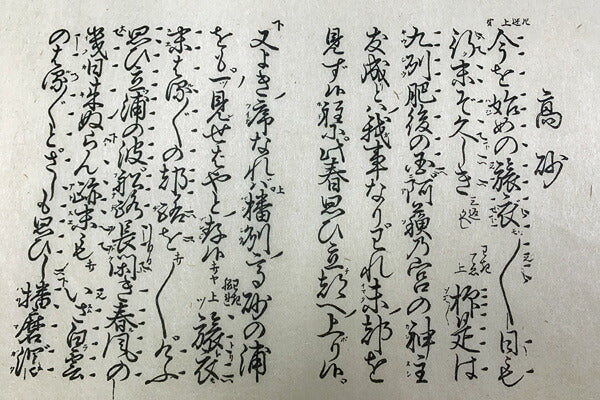 高砂
今を始めの旅衣〱日も
行末ぞ久しき 抑是は
九州肥後の国阿蘇の宮の神主
友成とは我事なりわれ未都を
見ず候程に此春思ひ立都へ上り候
又よき序なれば播州高砂の浦
をも一見せばやと存候 旅衣
末はる〲の都路を〱けふ
思ひ立浦の波船路長閑き春風の
幾日来ぬらん跡末もいさ白雲
のはる〲とさしも思ひし播磨潟